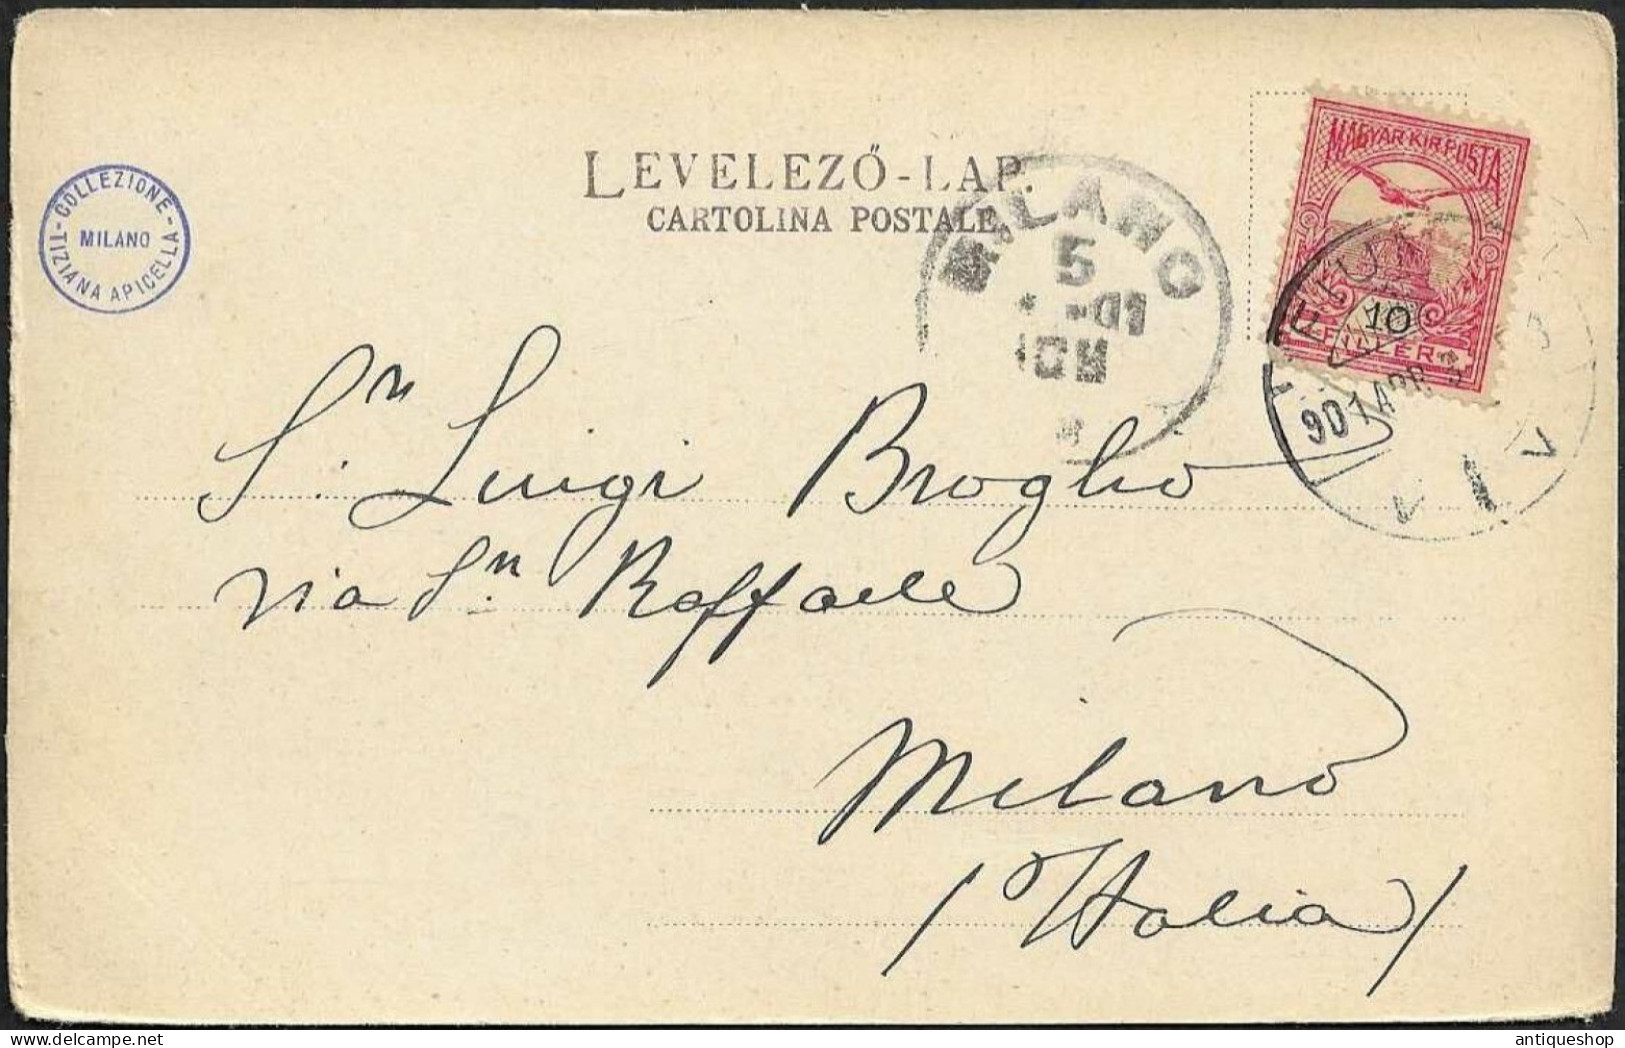 LEVELEZŐ-LAP.
CARTOLINA POSTALE
COLLEZIONE
MILANO
TIZIANA APICELLA
MILANO
5
-01
10M
MAGYAR KIR. POSTA
10
FILLER
FIUM
901 APR
Sn. Luigi Broglio
via Sn. Raffaele
Milano
/Italia/
antiqueshop